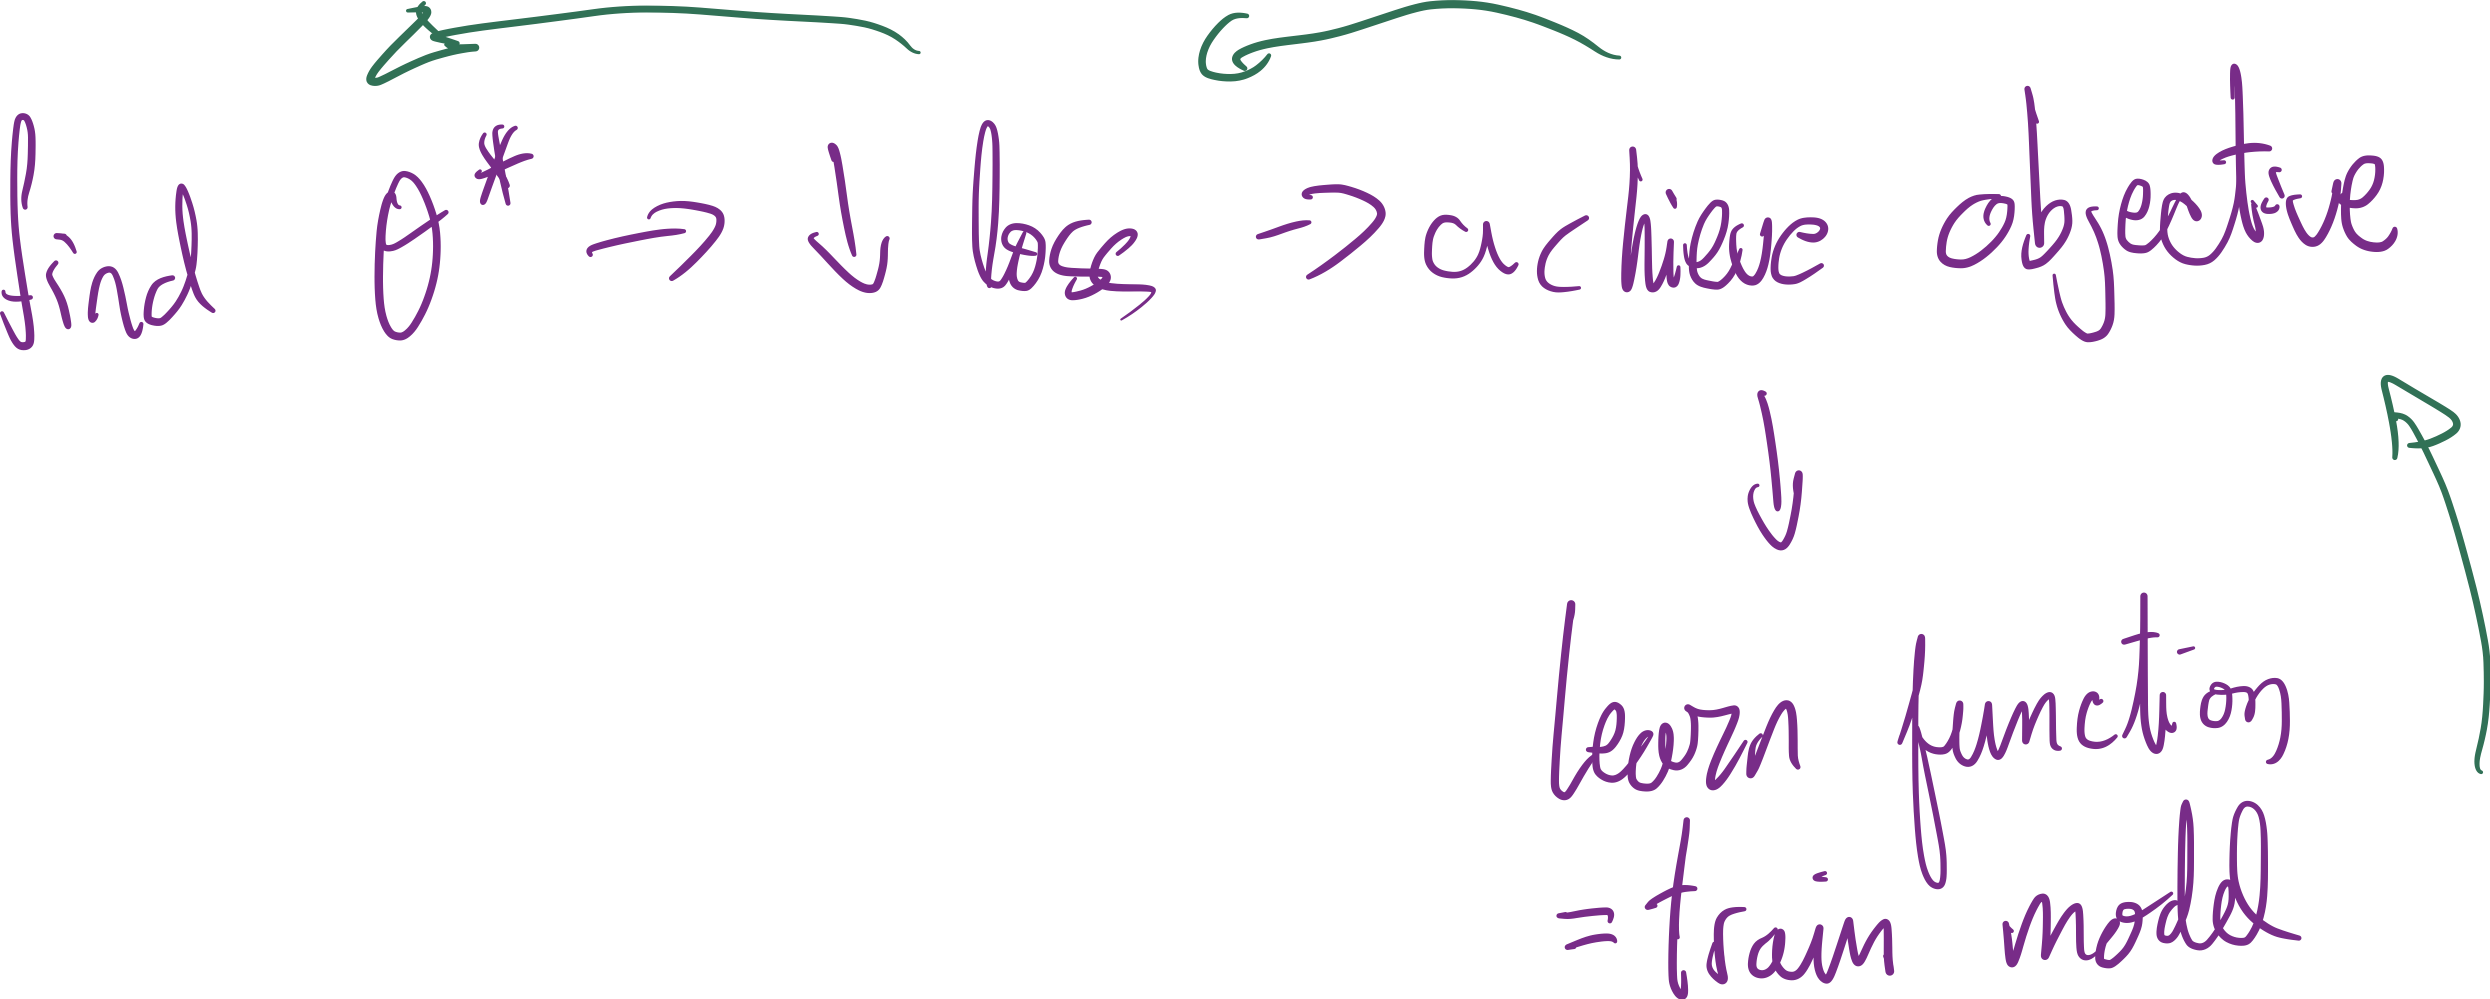 find θ* → ↓ loss → achieve objective
↓
learn function
= train model